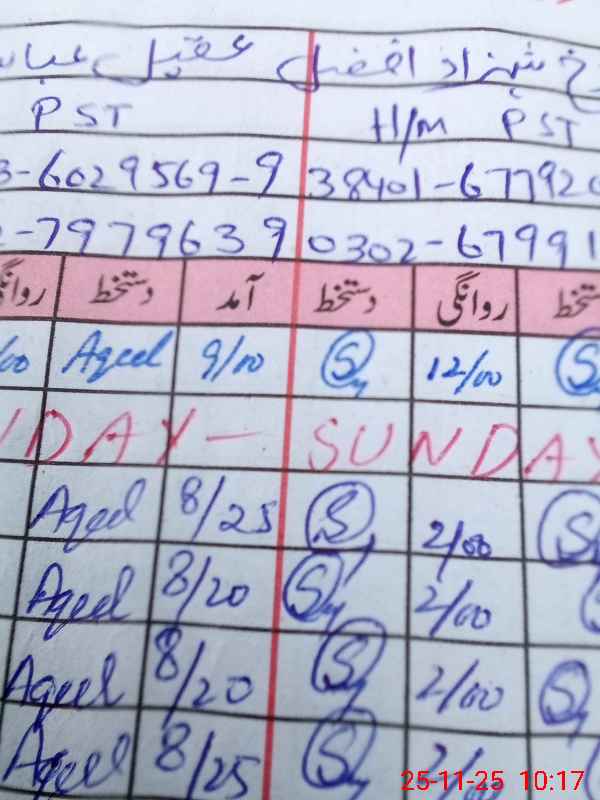 شہزاد افضل عقیل عباس
H/M PST PST
3-6029569-9 38401-677920
-7979639 0302-67991
دستخط روانگی دستخط آمد دستخط روانگی
/00 Aqeel 9/00 Sy 12/00 S
SUNDAY - SUNDAY
Aqeel 8/25 Sy 2/00 S
Aqeel 8/20 Sy 2/00
Aqeel 8/20 Sy 2/00 S
Aqeel 8/25 Sy 2/
25-11-25 10:17